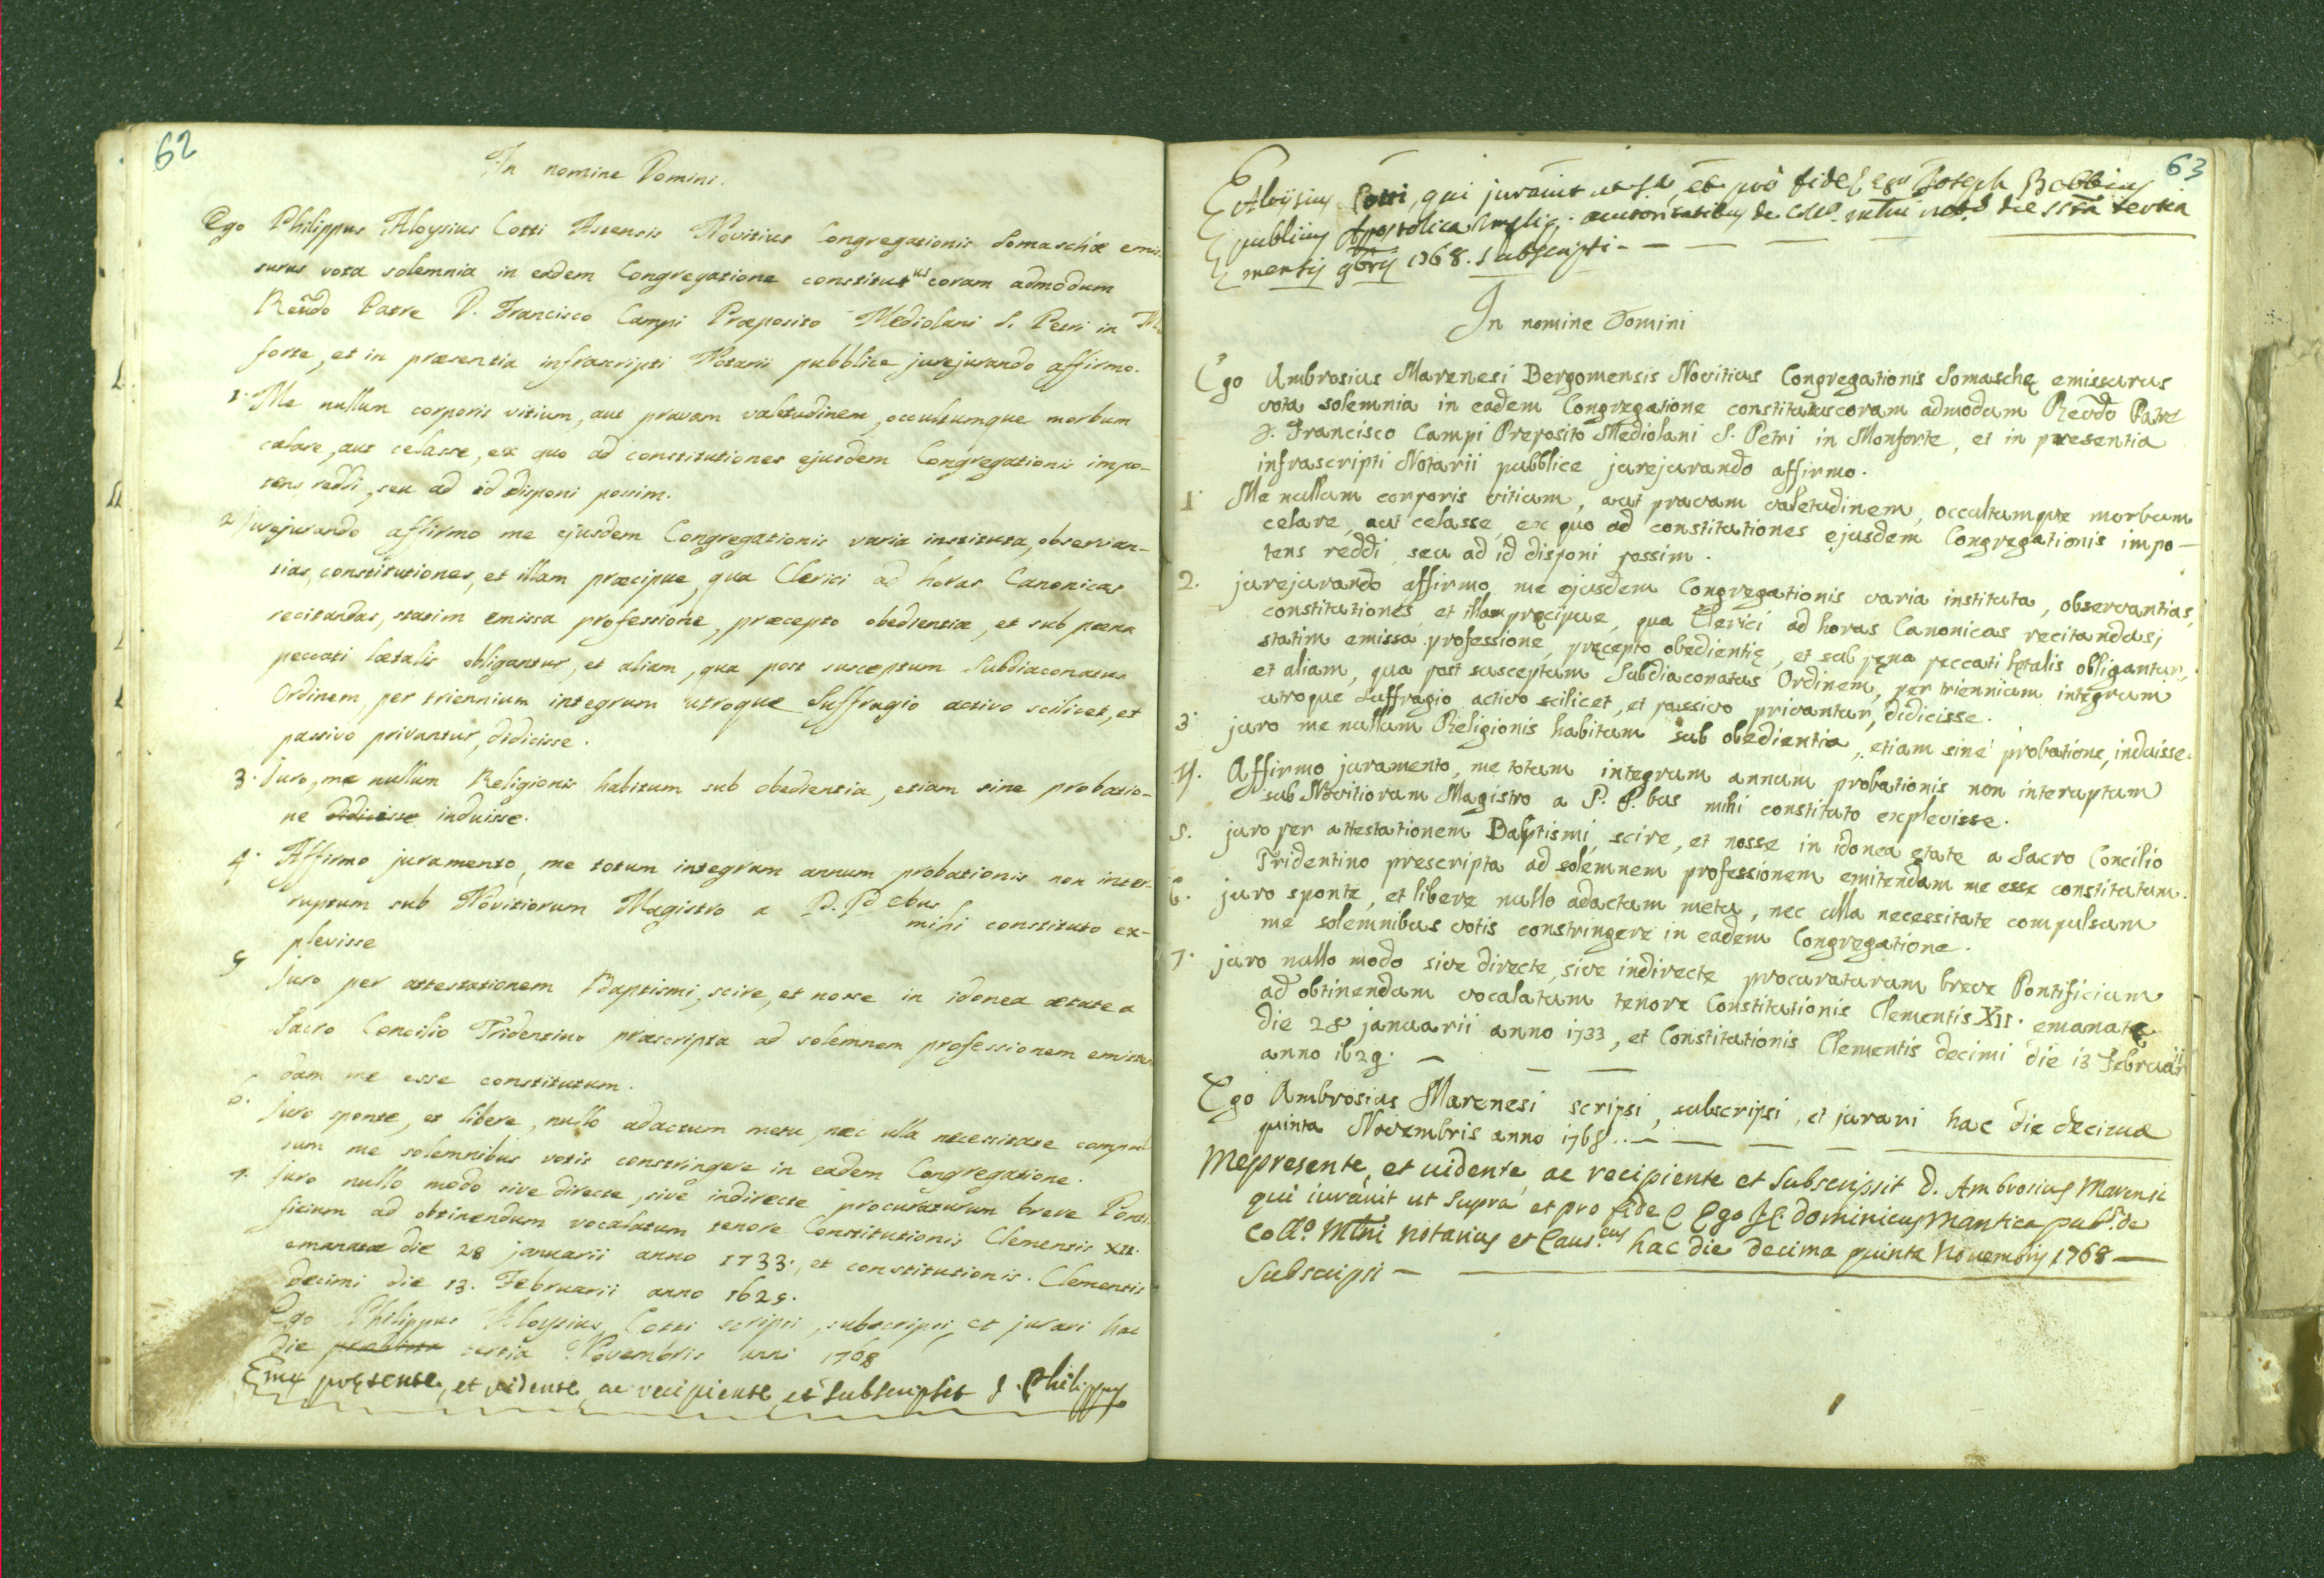 62
In nomine Domini.
Ego Philippus Aloysius Cotti Astensis Novitius Congregationis Somaschæ emis-
surus vota solemnia in eadem Congregatione constitutus coram admodum
Rendo Patre D. Francisco Campi Præposito Mediolani S. Petri in M
forte, et in præsentia infrascripti Notarii pubblice jurejurando affirmo.
1. Me nullum corporis vitium, aut pravam valetudinem, occultumque morbum
celare, aut celasse, ex quo ad constitutiones ejusdem Congregationis impo-
tens reddi, seu ad id disponi possim.
2 jurejurando affirmo me ejusdem Congregationis varia instituta, observan-
tias, constitutiones, et illam præcipue, qua Clerici ad horas Canonicas
recitandas, statim emissa professione, præcepto obedientiæ, et sub pœna
peccati lætalis obligantur, et aliam, qua post susceptum Subdiaconatus
Ordinem, per triennium integrum utroque Suffragio activo scilicet, et
passivo privantur, didicisse.
3. Juro, me nullum Religionis habitum sub obedientia, etiam sine probatio-
ne didicisse induisse.
4. Affirmo juramento, me totum integrum annum probationis non inter-
ruptum sub Novitiorum Magistro a P. P.ebus mihi constituto ex-
plevisse
5 Juro per attestationem Baptismi, scire, et nosse in idonea ætate a
Sacro Concilio Tridentino præscripta ad solemnem professionem emitten
dam me esse constitutum.
6. Juro sponte, et libere, nullo adactum metu, nec ulla necessitate compul
sum me solemnibus votis constringere in eadem Congregatione.
7. Juro nullo modo sive directe, sive indirecte procuraturum breve Ponti-
ficium ad obtinendum vocalatum tenore Constitutionis Clementis XII.
emanatæ die 28 januarii anno 1733., et constitutionis. Clementis
decimi die 13. Februarii anno 1629.
Ego Philippus Aloysius Cotti scripsi, subscripsi, et juravi hac
die tertia Novembris anni 1768
Eme presente, et vidente ac recipiente et subscripsit d. Philippus
63
Aloijsius Cotti, qui juravit ut sa, et pro fide ego Joseph Bobbius
publicus Apostolica autoritatibus de Coll. not. die ssta tertia
mensis 9bris 1768. subscripsi -
In nomine Domini
Ego Ambrosius Marenesi Bergomensis Novitius Congregationis Somaschę emissurus
vota solemnia in eadem Congregatione constitutus coram admodum Rendo Patre
D. Francisco Campi Preposito Mediolani S. Petri in Monforte, et in presentia
infrascripti Notarii pubblice jurejurando affirmo.
1. Me nullum corporis vitium, aut pravam valetudinem, occultumque morbum
celare, aut celasse, ex quo ad constitutiones ejusdem Congregationis impo-
tens reddi, seu ad id disponi possim.
2. jurejurando affirmo, me ejusdem Congregationis varia instituta, observantias,
constitutiones, et illam pręcipue, qua Clerici ad horas Canonicas recitandas,
statim emissa professione, pręcepto obedientię, et sub pęna peccati lętalis obligantur,
et aliam, qua post susceptum Subdiaconatus Ordinem, per triennium integrum
utroque Suffragio activo scilicet, et passivo privantur, didicisse.
3. juro me nullum Religionis habitum sub obedientia, etiam sine probatione, induisse.
4. Affirmo juramento, me totum integrum annum probationis non interuptum
sub Novitiorum Magistro a P. P.bus mihi constituto explevisse.
5. juro per attestationem Baptismi, scire, et nosse in idonea etate a Sacro Concilio
Tridentino prescripta ad solemnem professionem emitendam me esse constitutum.
6. juro sponte, et libere nullo adactum metu, nec ulla necessitate compulsum
me solemnibus votis constringere in eadem Congregatione.
7. juro nullo modo sive directe, sive indirecte procuraturum breve Pontificium
ad obtinendum vocalatum tenore Constitutionis Clementis XII. emanatę
die 28 januarii anno 1733, et Constitutionis Clementis decimi die 13 Februarii
anno 1629. -
Ego Ambrosius Marenesi scripsi, subscripsi, et juravi hac die decima
quinta Novembris anno 1768. -
Me presente, et vidente, ac recipiente et subscripsit D. Ambrosius Marensi
qui iuravit ut supra et pro fide Ego J. C. Dominicus Mantica pub.s de
Coll.o Mlni Notarius et Caus.cus hac die decima quinta Novembris 1768 -
Subscripsi -